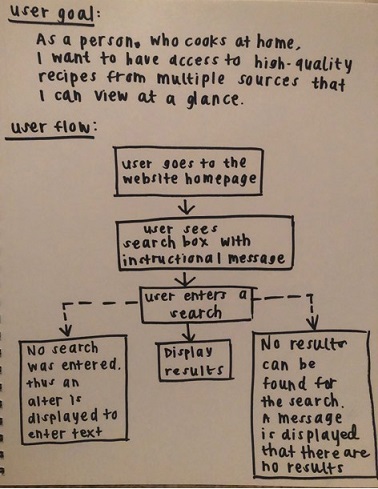 user goal:
As a person. who cooks at home,
I want to have access to high-quality
recipes from multiple sources that
I can view at a glance.
user flow:
user goes to the
website homepage
user sees
search box with
instructional message
user enters a
search
No search
was entered.
thus an
alter is
displayed to
enter text
Display
results
No results
can be
found for
the search.
A message
is displayed
that there are
no results